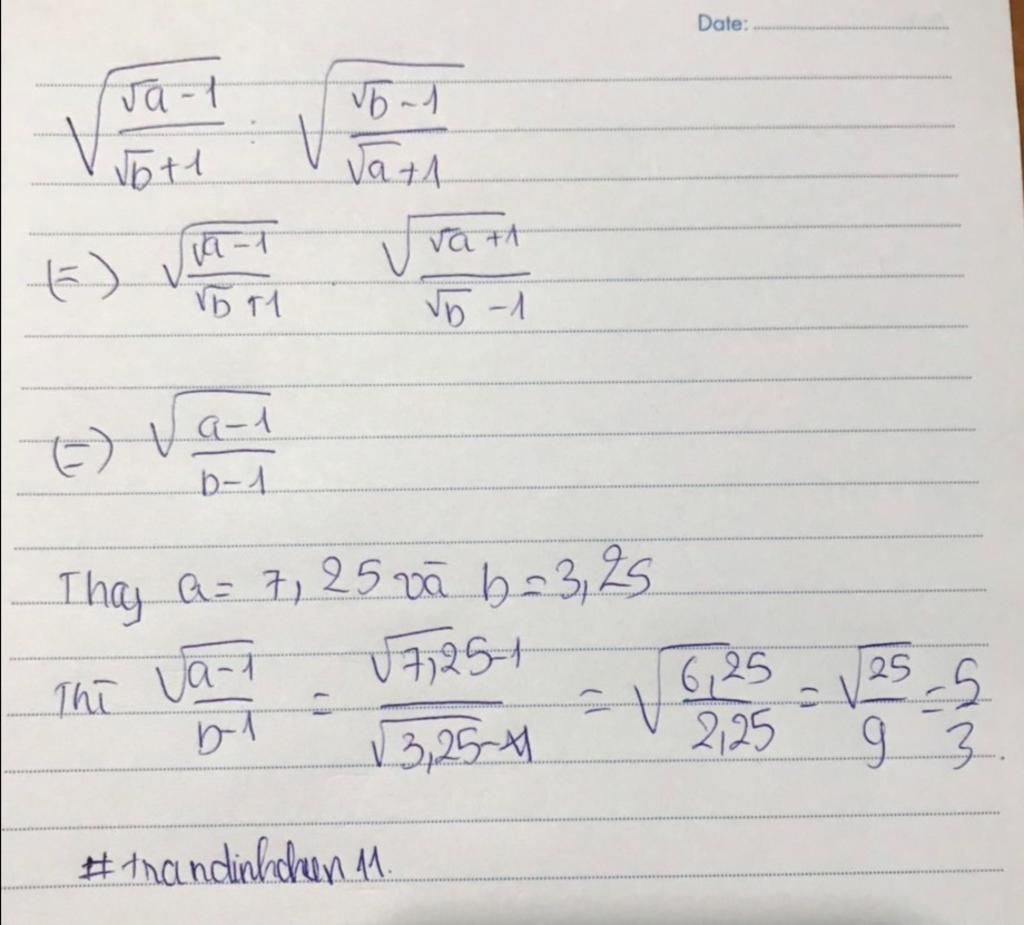 Date:
√((√a - 1)/(√b + 1)) : √((√b - 1)/(√a + 1))
(=) √((√a - 1)/(√b + 1)) . √((√a + 1)/(√b - 1))
(=) √((a - 1)/(b - 1))
Thay a = 7,25 và b = 3,25
Thì √((a - 1)/(b - 1)) = √(7,25 - 1)/√(3,25 - 1) = √(6,25/2,25) = √(25/9) = 5/3.
# trandinhchuen 11.